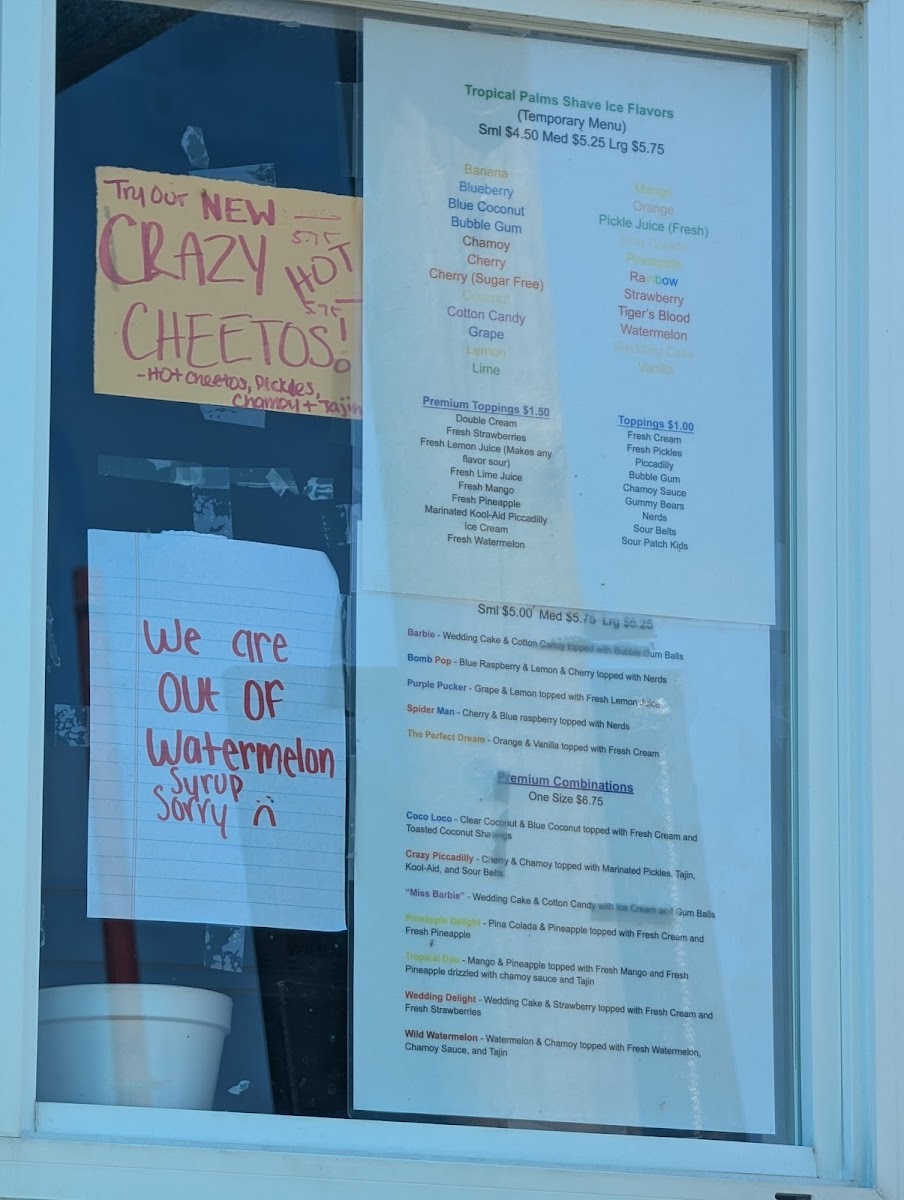 Try Our NEW
CRAZY
5.75
HOT
5.75
CHEETOS!
-HOt Cheetos, Pickles,
Chamoy + Tajin
We are
OUt OF
Watermelon
Syrup
Sorry
Tropical Palms Shave Ice Flavors
(Temporary Menu)
Sml $4.50 Med $5.25 Lrg $5.75
Banana
Blueberry
Blue Coconut
Bubble Gum
Chamoy
Cherry
Cherry (Sugar Free)
Coconut
Cotton Candy
Grape
Lemon
Lime
Mango
Orange
Pickle Juice (Fresh)
Pina Colada
Pineapple
Rainbow
Strawberry
Tiger's Blood
Watermelon
Wedding Cake
Vanilla
Premium Toppings $1.50
Double Cream
Fresh Strawberries
Fresh Lemon Juice (Makes any
flavor sour)
Fresh Lime Juice
Fresh Mango
Fresh Pineapple
Marinated Kool-Aid Piccadilly
Ice Cream
Fresh Watermelon
Toppings $1.00
Fresh Cream
Fresh Pickles
Piccadilly
Bubble Gum
Chamoy Sauce
Gummy Bears
Nerds
Sour Belts
Sour Patch Kids
Sml $5.00 Med $5.75 Lrg $6.25
Barbie - Wedding Cake & Cotton Candy topped with Bubble Gum Balls
Bomb Pop - Blue Raspberry & Lemon & Cherry topped with Nerds
Purple Pucker - Grape & Lemon topped with Fresh Lemon Juice
Spider Man - Cherry & Blue raspberry topped with Nerds
The Perfect Dream - Orange & Vanilla topped with Fresh Cream
Premium Combinations
One Size $6.75
Coco Loco - Clear Coconut & Blue Coconut topped with Fresh Cream and
Toasted Coconut Shavings
Crazy Piccadilly - Cherry & Chamoy topped with Marinated Pickles, Tajin,
Kool-Aid, and Sour Belts
"Miss Barbie" - Wedding Cake & Cotton Candy with Ice Cream and Gum Balls
Pineapple Delight - Pina Colada & Pineapple topped with Fresh Cream and
Fresh Pineapple
Tropical Duo - Mango & Pineapple topped with Fresh Mango and Fresh
Pineapple drizzled with chamoy sauce and Tajin
Wedding Delight - Wedding Cake & Strawberry topped with Fresh Cream and
Fresh Strawberries
Wild Watermelon - Watermelon & Chamoy topped with Fresh Watermelon,
Chamoy Sauce, and Tajin